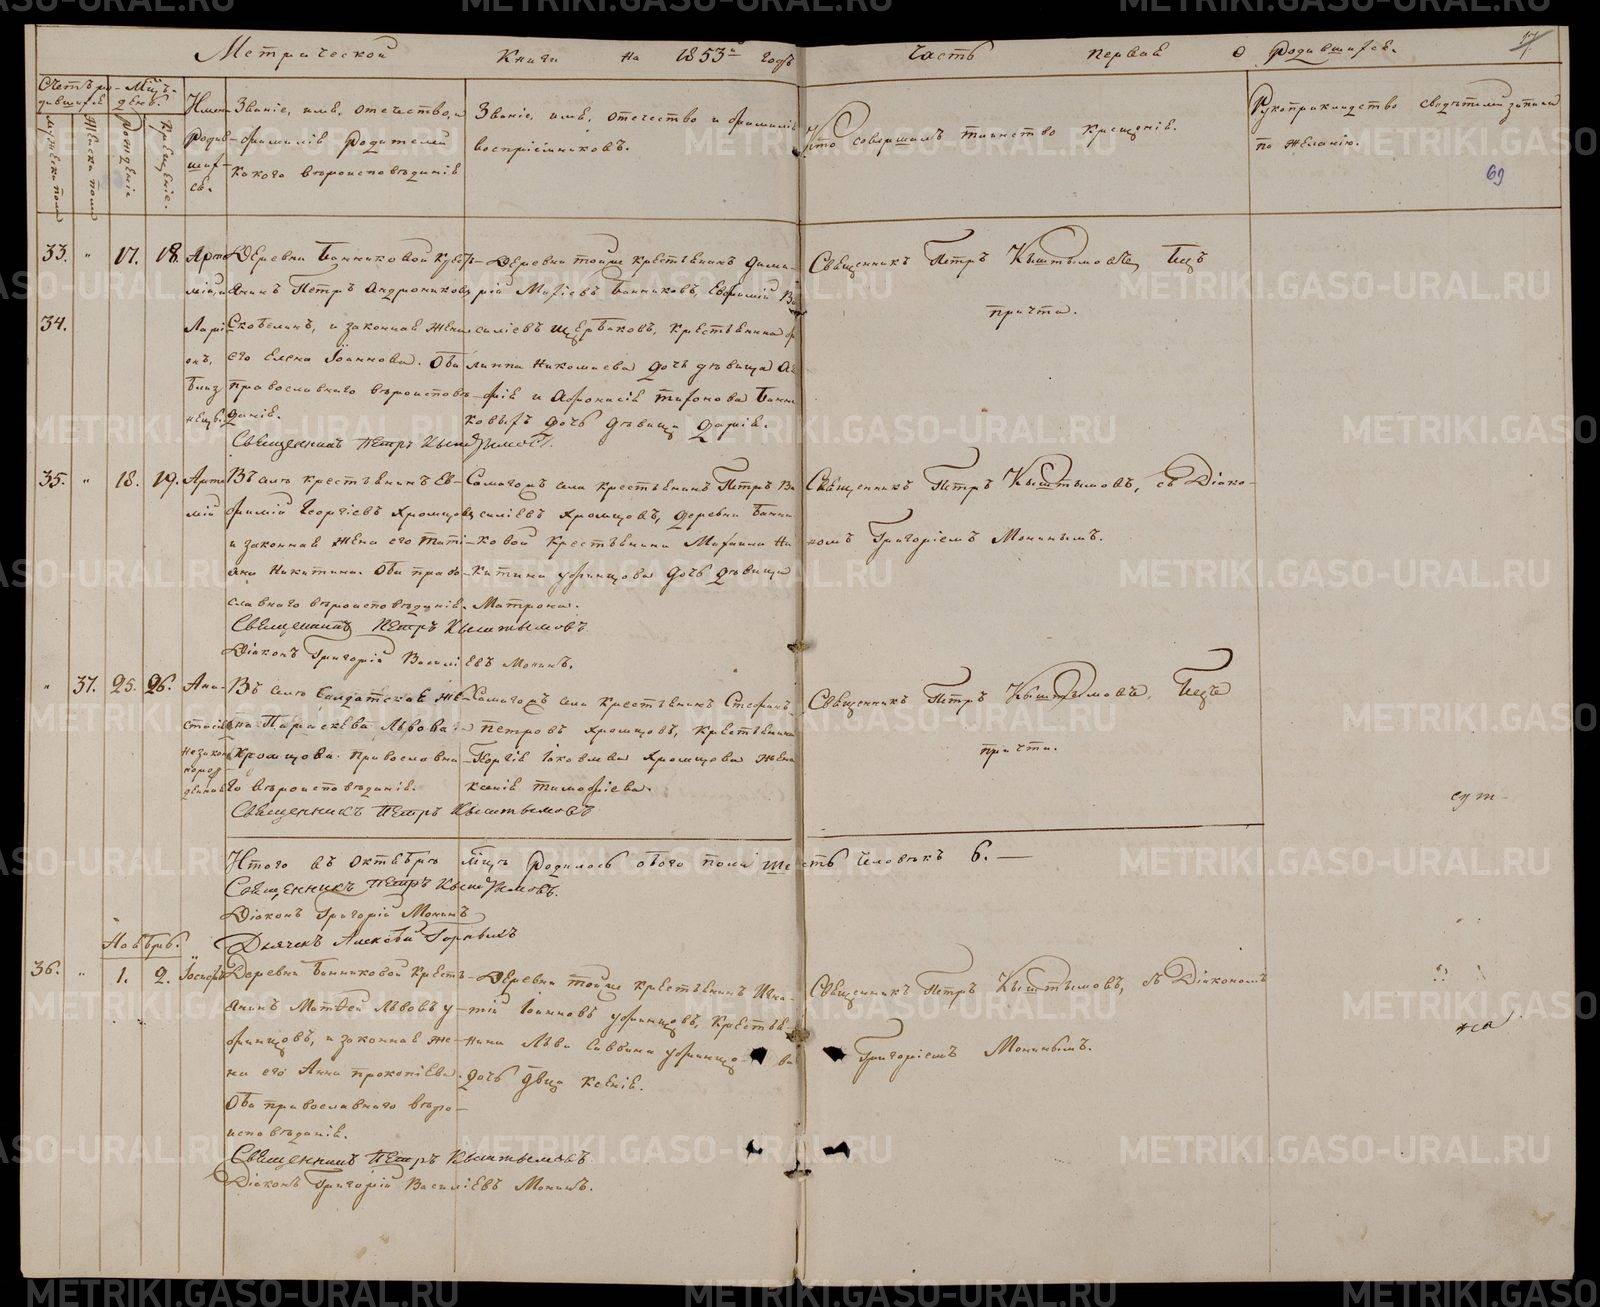 Метрической книги на 1853й годъ часть первая о родившихся.
Счетъ родившихся
Мужеска пола
Женска пола
Мцъ. день.
Рожденіе
Крещеніе.
Имена родившихся.
Званіе, имя, отечество, и
фамилія родителей
какого вѣроисповѣданія
Званіе, имя, отечество и фамилія
воспріемниковъ.
Кто совершалъ таинство крещенія.
Рукоприкладство свидѣтелей записи
по желанію.
69
33. " 17. 18.
Деревни Банниковой крестьянинъ Петръ Андрониковъ
34.
Скобелинъ, и законная жена
его Елена Іоаннова. Оба
православнаго вѣроисповѣданія.
Священникъ Петръ Кыштымовъ.
Деревни тойже крестьянинъ
Банниковъ, Евфимій
силіевъ Щербаковъ, крестьянина
Николаева дочь дѣвица
и Афонасія Банниковыхъ дочь дѣвица Дарія.
Священникъ Петръ Кыштымовъ,
причта.
35. " 18. 19. Артемій
Въ селѣ крестьянинъ Евфимій Георгіевъ Хромцовъ
и законная жена его Татіана Никитина. Оба православнаго вѣроисповѣданія.
Священникъ Петръ Кыштымовъ
Діаконъ Григорій Василіевъ Монинъ.
крестьянинъ Петръ Василіевъ Хромцовъ, деревни Банниковой крестьянина Михаила Никитина Уфинцова дочь дѣвица
Матрона.
Священникъ Петръ Кыштымовъ, съ Діакономъ Григоріемъ Монинымъ.
" 37. 25. 26. Анастасія незаконнорожденная
Въ селѣ солдатская жена Параскева Львова
Хромцова. Православнаго вѣроисповѣданія.
Священникъ Петръ Кыштымовъ
крестьянинъ Стефанъ
Петровъ Хромцовъ, крестьянина
Георгія Іаковлева Хромцова жена
Ксенія Тимофіева.
Священникъ Петръ Кыштымовъ,
причта.
Итого въ октябрѣ мцѣ родилось обоего пола шесть человѣкъ 6. —
Священникъ Петръ Кыштымовъ.
Діаконъ Григорій Монинъ
Дьячекъ Алексѣй Горныхъ
Ноябрь.
36. " 1. 2. Іосифъ
Деревни Банниковой крестьянинъ Матвей Львовъ Уфинцовъ, и законная жена его Анна Прокопіева.
Оба православнаго вѣроисповѣданія.
Священникъ Петръ Кыштымовъ
Діаконъ Григорій Василіевъ Монинъ.
Деревни тойже крестьянинъ Игнатій Іоанновъ Уфинцовъ, крестьянина Льва Саввина Уфинцова
дочь дѣвца Ксенія.
Священникъ Петръ Кыштымовъ, съ Діакономъ
Григоріемъ Монинымъ.
METRIKI.GASO-URAL.RU